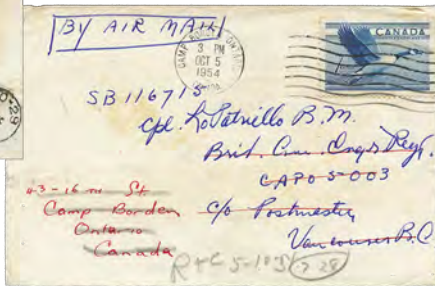 BY AIR MAIL
CAMP BORDEN ONTARIO
3 PM
OCT 5
1954
CANADA
SB116715
Cpl. LoPatriello B.M.
Brit. Com. Engrs Regt.
CAPO 5003
c/o Postmaster
Vancouver B.C.
43-16 TH St.
Camp Borden
Ontario
Canada